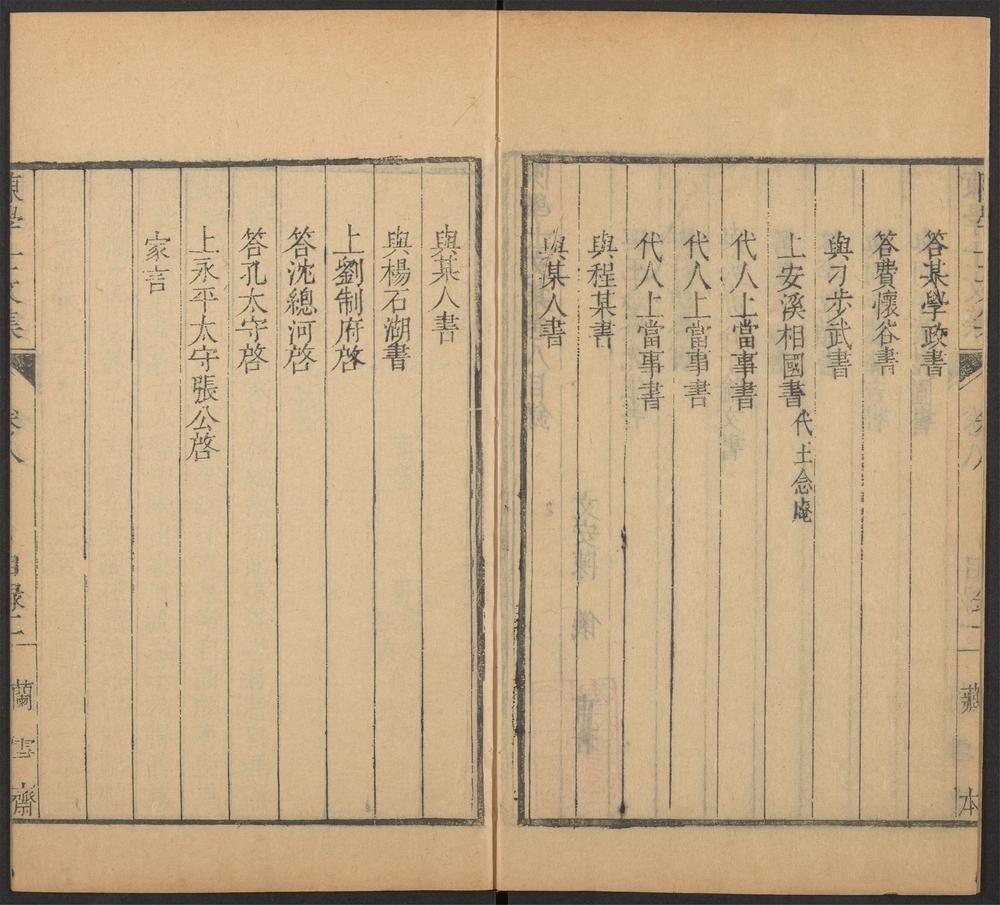 答某學政書
答費懷谷書
與刁步武書
上安溪相國書代王念庵
代人上當事書
代人上當事書
代人上當事書
與程某書
與某人書
藏
本
與某人書
與楊石湖書
上劉制府啓
答沈總河啓
答孔太守啓
上永平太守張公啓
家言
陳學士文集
卷八
目錄二
蘭雪齋